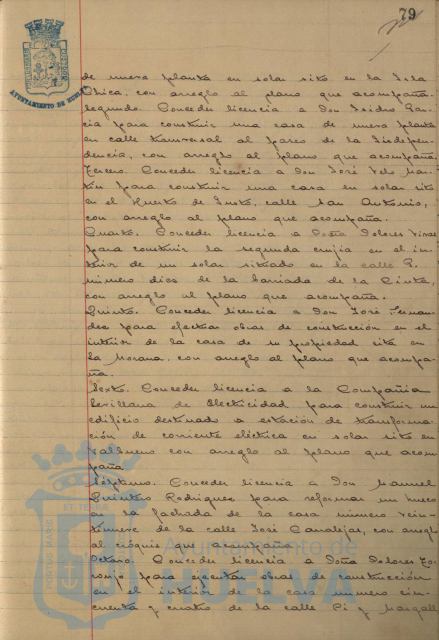 79
AYUNTAMIENTO DE HUELVA
de nueva planta en solar sito en la Isla
Chica, con arreglo al plano que acompaña.
Segundo. Conceder licencia a Don Isidro Gar-
cia para construir una casa de nueva planta
en calle transversal al paseo de la Indepen-
dencia, con arreglo al plano que acompaña.
Tercero. Conceder licencia a Don José Vels Mar-
tin para construir una casa en solar sito
en el Huerto de calle San Antonio,
con arreglo al plano que acompaña.
Cuarto. Conceder licencia a Doña Dolores
para construir la segunda crujia en el in-
terior de un solar situado en la calle
número diez de la barriada de la Cinta,
con arreglo al plano que acompaña.
Quinto. Conceder licencia a Don José Fernan-
dez para efectuar obras de construcción en el
interior de la casa de su propiedad sita en
La Morana, con arreglo al plano que acompa-
ña.
Sexto. Conceder licencia a la Compañia
Sevillana de Electricidad para construir un
edificio destinado a estación de transforma-
ción de corriente eléctrica en solar sito en
con arreglo al plano que acom-
paña
Séptimo. Conceder licencia a Don Manuel
Quintero Rodriguez para reformar un hueco
en la fachada de la casa número vein-
tinueve de la calle José Canalejas, con arreglo
al cróquis que acompaña.
Octavo. Conceder licencia a Doña Dolores To-
ronjo para ejecutar obras de construcción
en el interior de la casa número cin-
cuenta y cuatro de la calle Pi y Margall
Ayuntamiento de
HUELVA